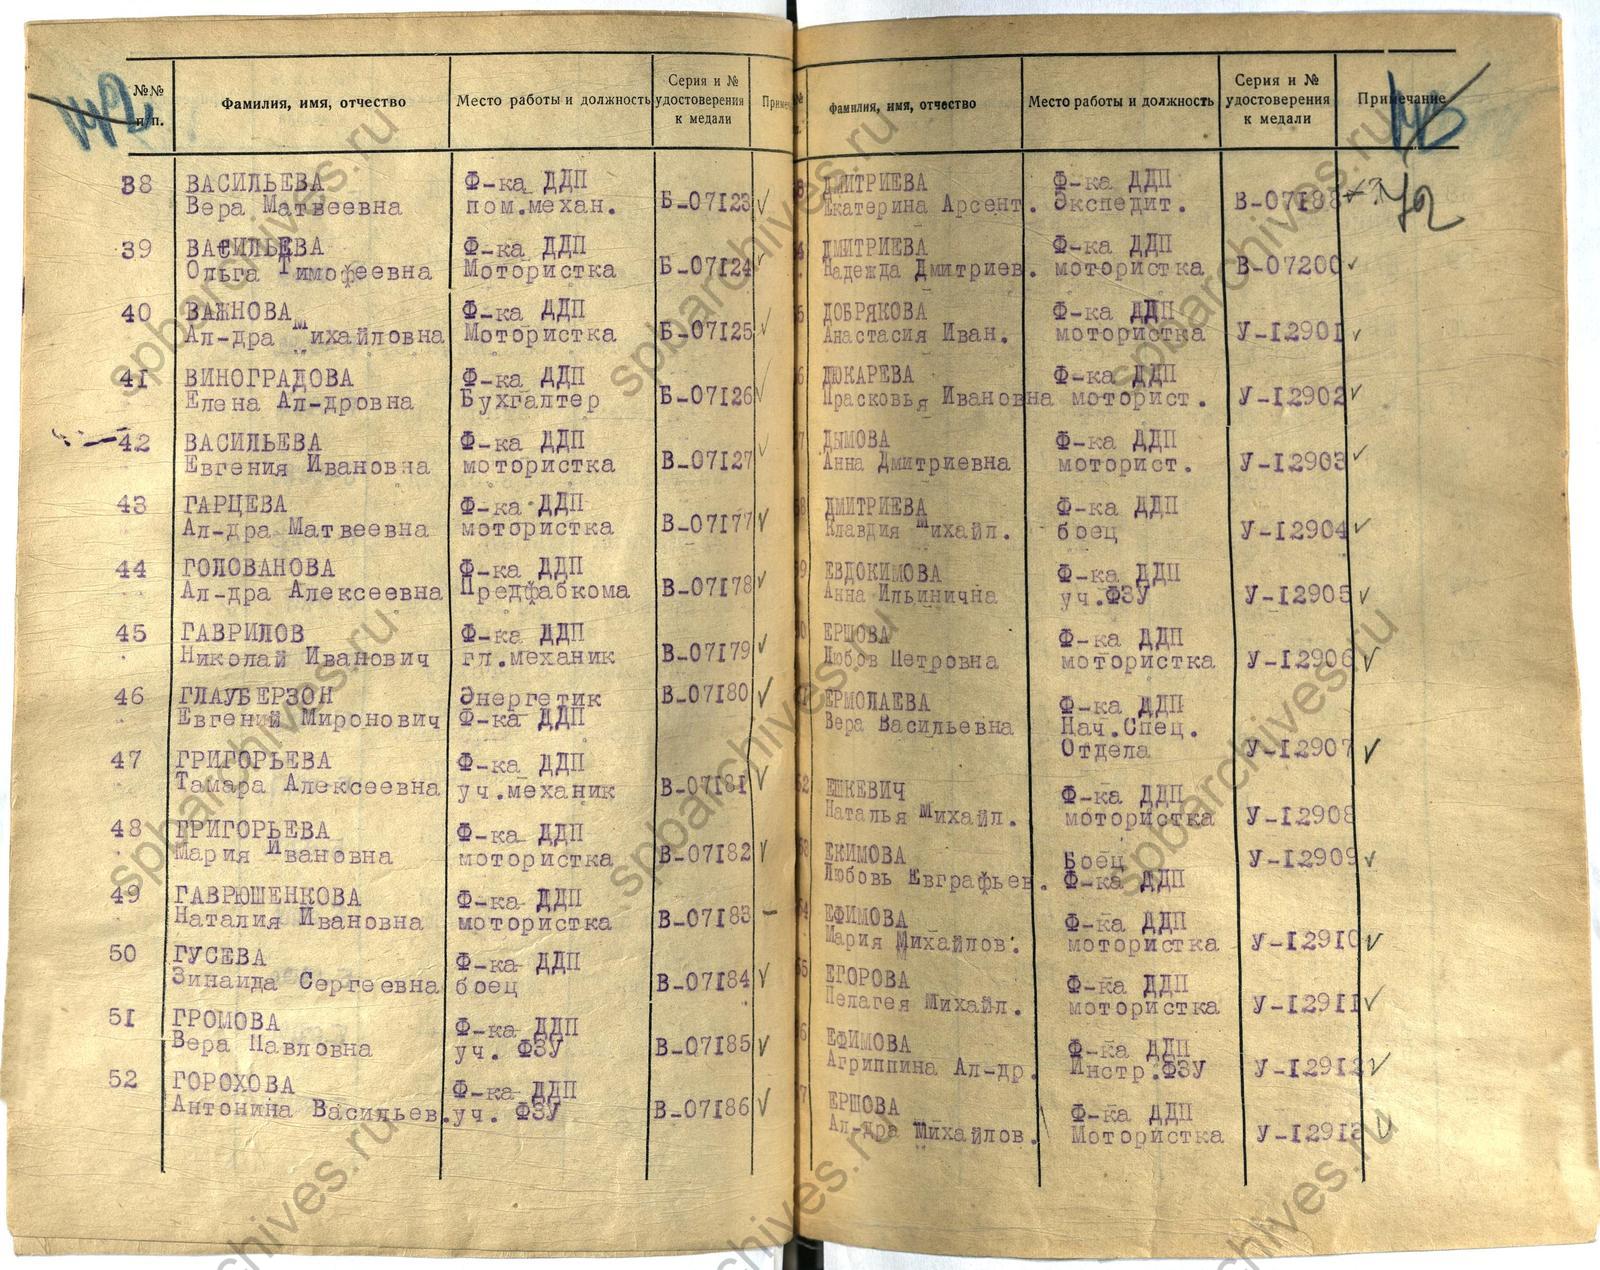 №№ п/п.
Фамилия, имя, отчество
Место работы и должность
Серия и № удостоверения к медали
38 ВАСИЛЬЕВА Ф-ка ДДП
Вера Матвеевна пом.механ. Б-07123 ✓
39 ВАСИЛЬЕВА Ф-ка ДДП
Ольга Тимофеевна Мотористка Б-07124 ✓
40 ВАЖНОВА Ф-ка ДДП
Ал-дра Михайловна Мотористка Б-07125 ✓
41 ВИНОГРАДОВА Ф-ка ДДП
Елена Ал-дровна Бухгалтер Б-07126 ✓
42 ВАСИЛЬЕВА Ф-ка ДДП
Евгения Ивановна мотористка В-07127 ✓
43 ГАРЦЕВА Ф-ка ДДП
Ал-дра Матвеевна мотористка В-07177 ✓
44 ГОЛОВАНОВА Ф-ка ДДП
Ал-дра Алексеевна Предфабкома В-07178 ✓
45 ГАВРИЛОВ Ф-ка ДДП
Николай Иванович гл.механик В-07179 ✓
46 ГЛАУБЕРЗОН Энергетик В-07180 ✓
Евгений Миронович Ф-ка ДДП
47 ГРИГОРЬЕВА Ф-ка ДДП
Тамара Алексеевна уч.механик В-07181 ✓
48 ГРИГОРЬЕВА Ф-ка ДДП
Мария Ивановна мотористка В-07182 ✓
49 ГАВРЮШЕНКОВА Ф-ка ДДП
Наталия Ивановна мотористка В-07183 –
50 ГУСЕВА Ф-ка ДДП
Зинаида Сергеевна боец В-07184 ✓
51 ГРОМОВА Ф-ка ДДП
Вера Павловна уч. ФЗУ В-07185 ✓
52 ГОРОХОВА Ф-ка ДДП
Антонина Васильев. уч. ФЗУ В-07186 ✓
Фамилия, имя, отчество
Место работы и должность
Серия и № удостоверения к медали
Примечание
72
ДМИТРИЕВА Ф-ка ДДП
Екатерина Арсент. Экспедит.
ДМИТРИЕВА Ф-ка ДДП
Надежда Дмитриев. мотористка В-07200 ✓
ДОБРЯКОВА Ф-ка ДДП
Анастасия Иван. мотористка У-12901 ✓
ДЮКАРЕВА Ф-ка ДДП
Прасковья Ивановна моторист. У-12902 ✓
ДЫМОВА Ф-ка ДДП
Анна Дмитриевна моторист. У-12903 ✓
ДМИТРИЕВА Ф-ка ДДП
Клавдия Михайл. боец У-12904 ✓
ЕВДОКИМОВА Ф-ка ДДП
Анна Ильинична уч.ФЗУ У-12905 ✓
ЕРШОВА Ф-ка ДДП
Любов Петровна мотористка У-12906 ✓
ЕРМОЛАЕВА Ф-ка ДДП
Вера Васильевна Нач.Спец.
Отдела У-12907 ✓
ЕШКЕВИЧ Ф-ка ДДП
Наталья Михайл. мотористка У-12908
ЕКИМОВА Боец У-12909 ✓
Любовь Евграфьев. Ф-ка ДДП
ЕФИМОВА Ф-ка ДДП
Мария Михайлов. мотористка У-12910 ✓
ЕГОРОВА Ф-ка ДДП
Пелагея Михайл. мотористка У-12911 ✓
ЕФИМОВА Ф-ка ДДП
Агриппина Ал-др. Инстр.ФЗУ У-12912 ✓
ЕРШОВА Ф-ка ДДП
Ал-дра Михайлов. Мотористка У-12913 ✓
spbarchives.ru